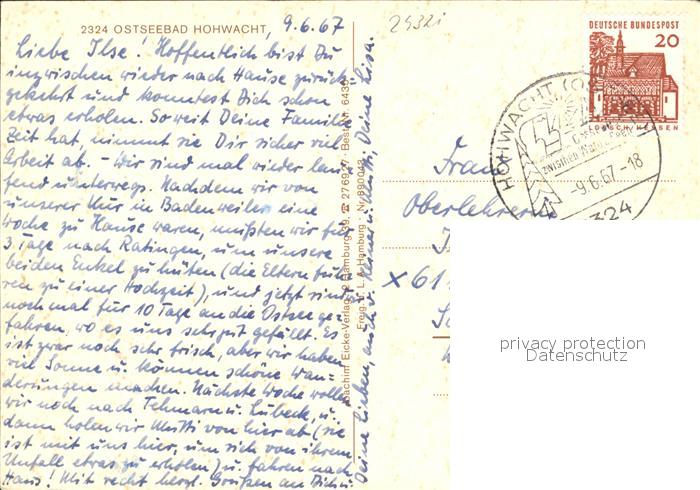 2324 OSTSEEBAD HOHWACHT, 9.6.67
Liebe Ilse! Hoffentlich bist Du
inzwischen wieder nach Hause zurück-
gekehrt und konntest Dich schon
etwas erholen. So weit Deine Familie
Zeit hat, nimmt sie Dir sicher viel
Arbeit ab. – Wir sind mal wieder lau-
fend unterwegs. Nachdem wir von
unserer Kur in Badenweiler eine
Woche zu Hause waren, mußten wir für
3 Tage nach Ratingen, um unsere
beiden Enkel zu hüten (die Eltern fuh-
ren zu einer Hochzeit), und jetzt sind
noch mal für 10 Tage an die Ostsee ge-
fahren, wo es uns sehr gut gefällt. Es
ist zwar noch sehr frisch, aber wir haben
viel Sonne u. können schöne Wan-
derungen machen. Nächste Woche wollen
wir noch nach Fehmarn u. Lübeck, u.
dann holen wir Mutti von hier ab (sie
ist mit uns hier, um sich von ihrem
Unfall etwas zu erholen) u. fahren nach
Haus! Mit recht herzl. Grüßen an Dich u.
Deine Lieben, auch v. Heiner u. Mutti, Deine Lisa.
Joachim Eicke-Verlag, 2 Hamburg 39, 276927 · Best. Nr. 6439
Freig. d. L. A. Hamburg · Nr. 690043
2432i
DEUTSCHE BUNDESPOST
20
LORSCH/HESSEN
HOHWACHT (OSTSEE)
zwischen
-9.6.67-18
2324
Frau
Oberlehrer
x 61
privacy protection
Datenschutz